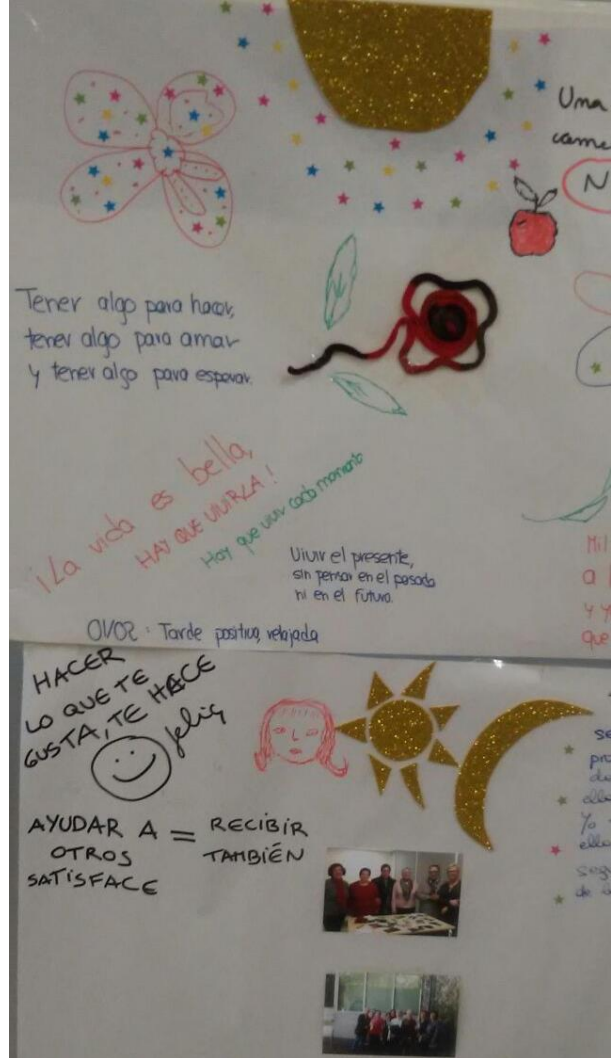 Una
N
Tener algo para hacer,
tener algo para amar
y tener algo para esperar.
¡La vida es bella,
HAY QUE VIVIRLA!
Hay que vivir cada momento
Vivir el presente,
sin pensar en el pasado
ni en el futuro.
Mil
a
y y
que
01/02: Tarde positiva, relajada
HACER
LO QUE TE
GUSTA, TE HACE
feliz
AYUDAR A = RECIBIR
OTROS TAMBIÉN
SATISFACE
se
Yo
de